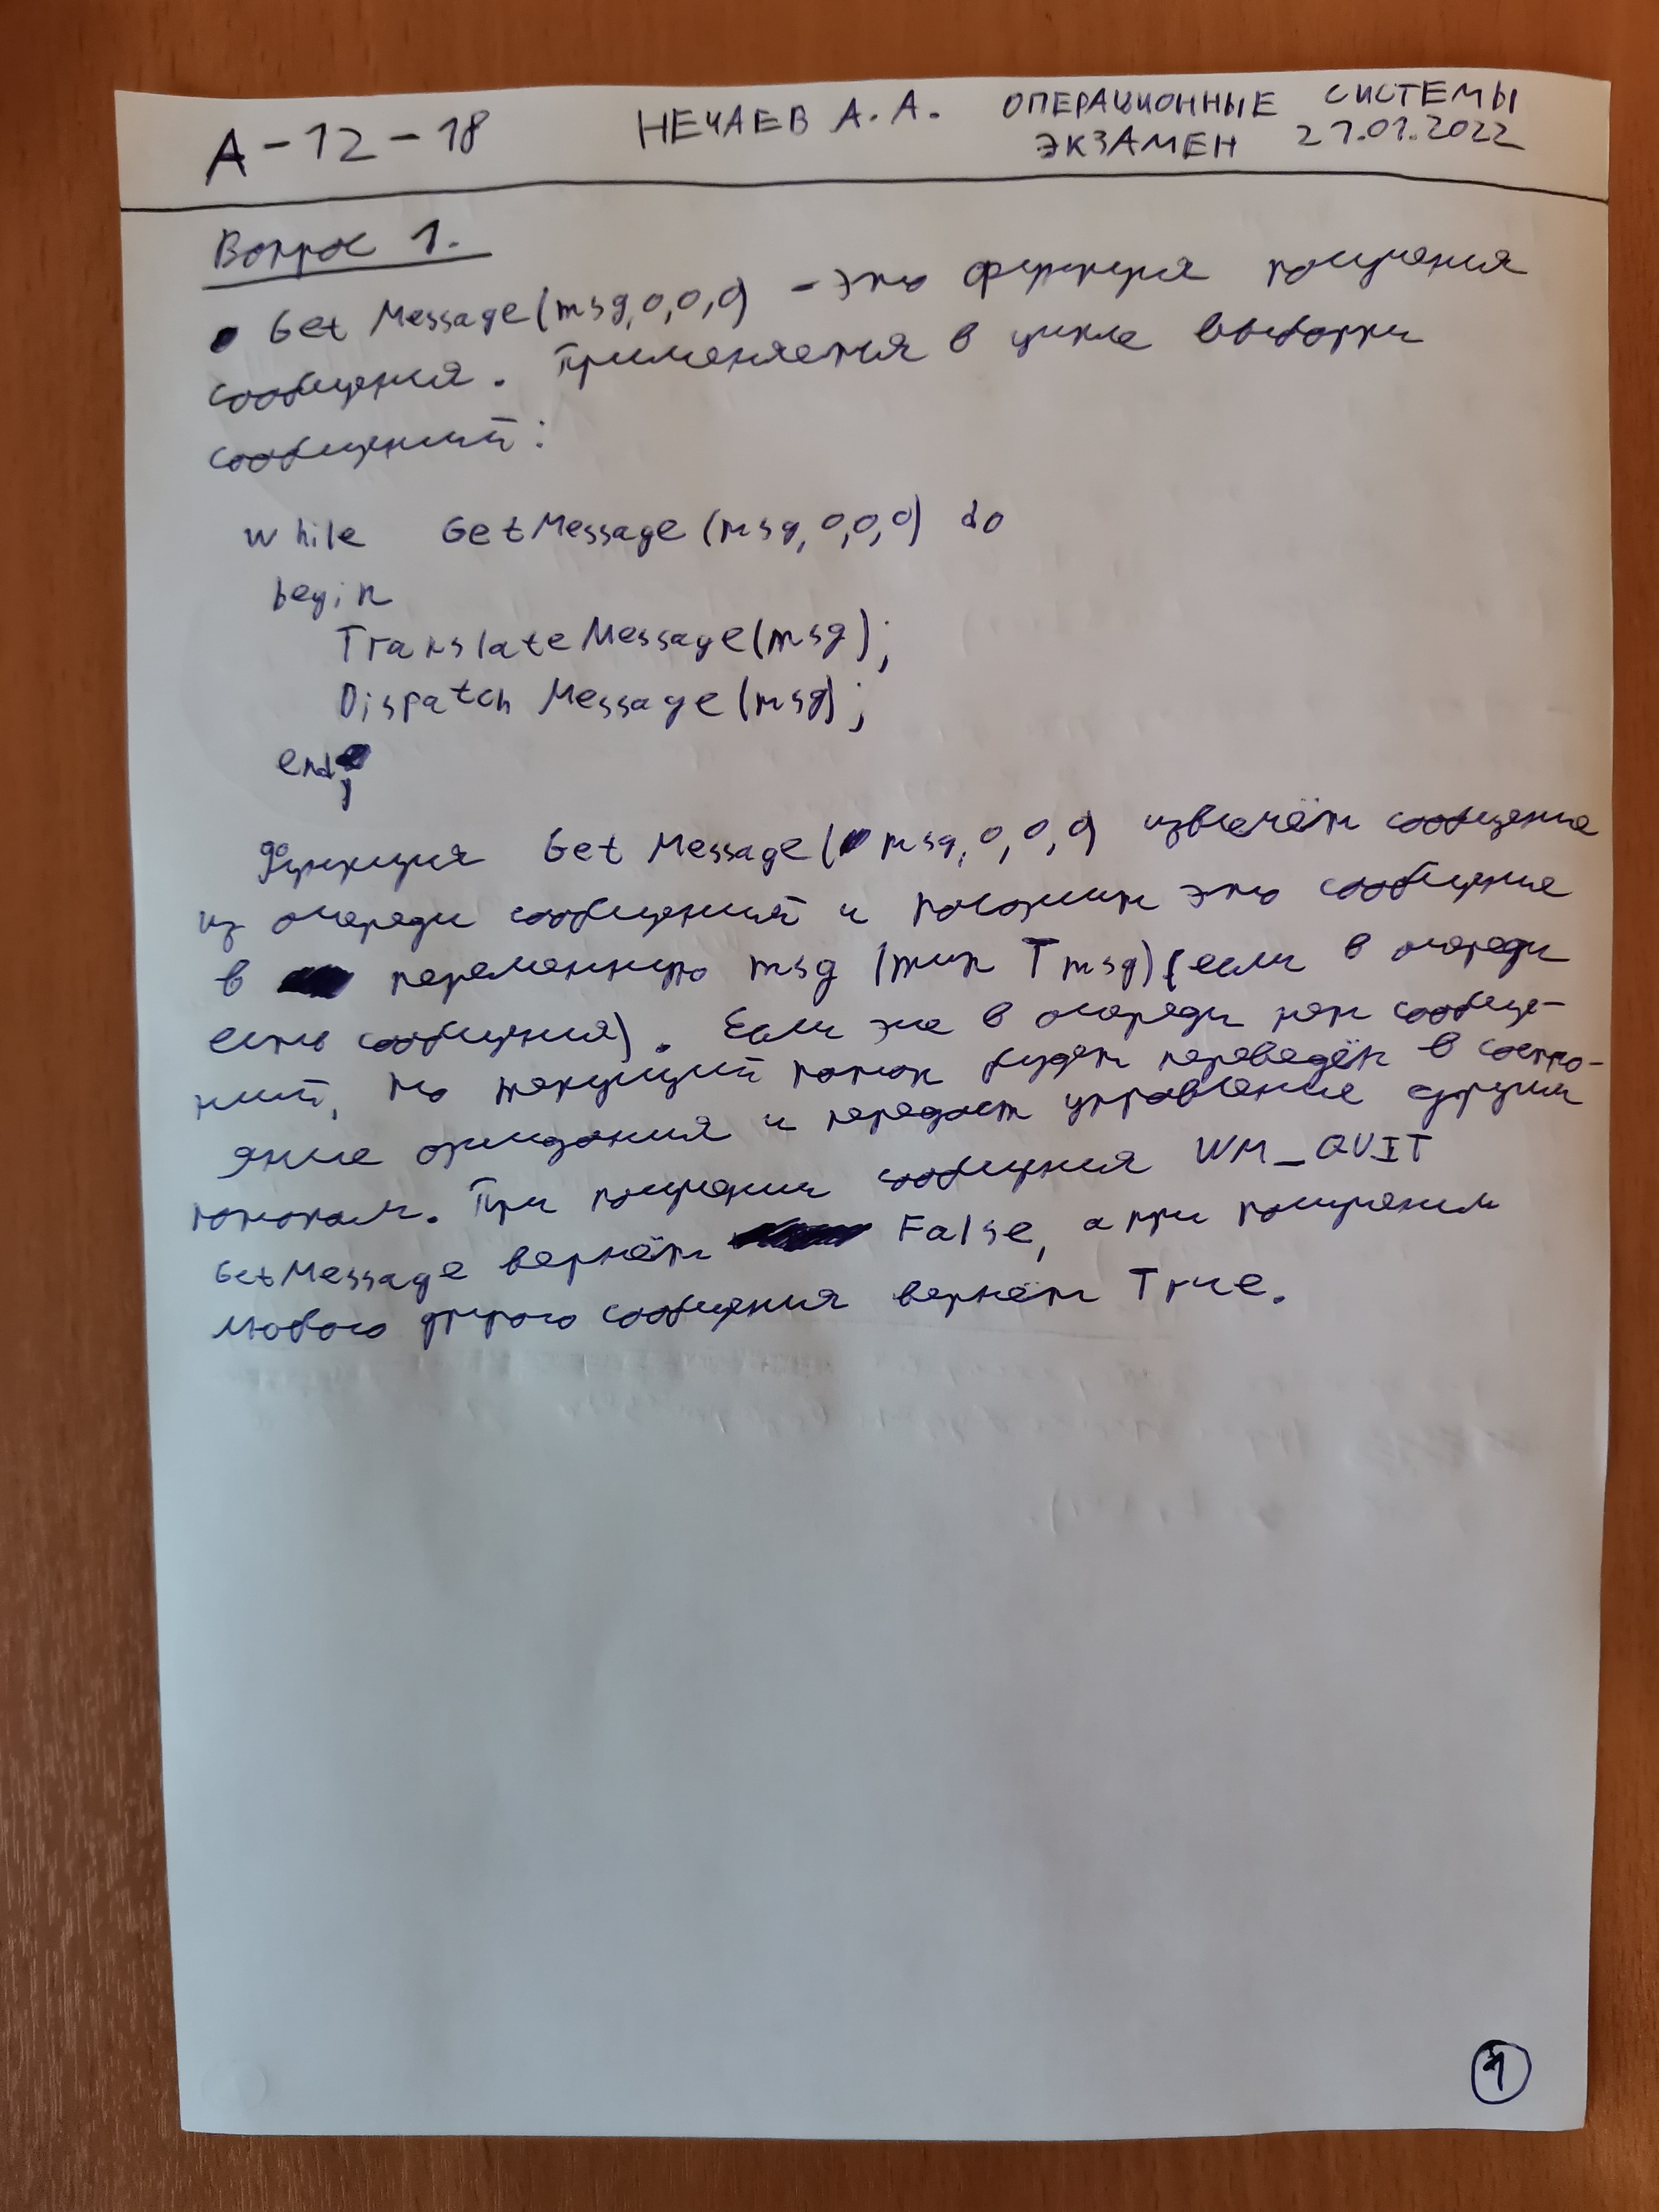 А-12-18 НЕЧАЕВ А.А. ОПЕРАЦИОННЫЕ СИСТЕМЫ
ЭКЗАМЕН 21.01.2022
Вопрос 1.
Get Message(msg,0,0,0) - это функция получения
сообщения. Применяется в цикле выборки
сообщений:
while GetMessage(msg,0,0,0) do
begin
TranslateMessage(msg);
Dispatch Message(msg);
end;
Функция Get Message(msg,0,0,0) извлечёт сообщение
из очереди сообщений и положит это сообщение
в переменную msg (тип Tmsg)(если в очереди
есть сообщения). Если же в очереди нет сообще-
ний, то текущий поток будет переведён в состо-
яние ожидания и передаст управление другим
потокам. При получении сообщения WM_QUIT
GetMessage вернёт False, а при получении
любого другого сообщения вернёт True.
1